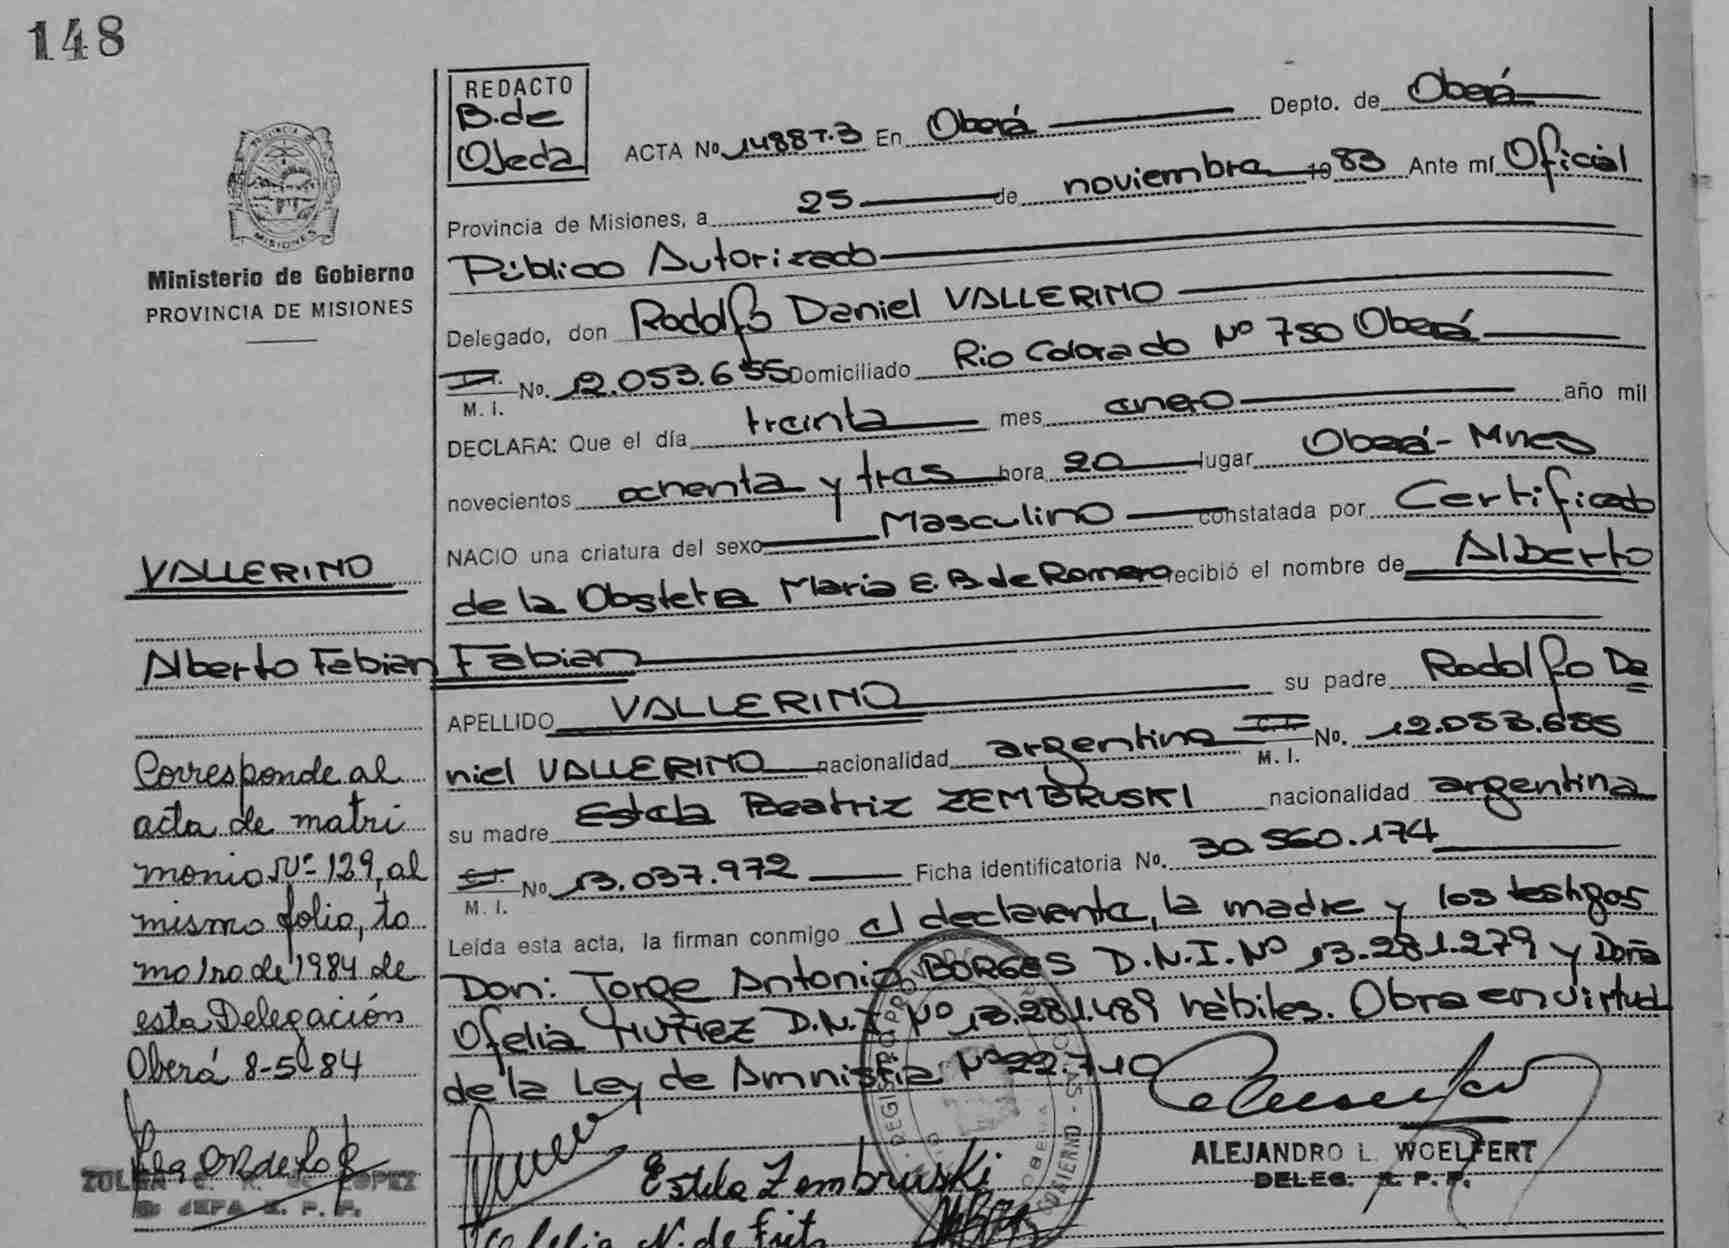 148
REDACTO
B. de
Ojeda
ACTA No. 1488 T. 3 En Oberá Depto. de Oberá
Provincia de Misiones, a 25 de noviembre 1983 Ante mí Oficial
Público Autorizado
Delegado, don Rodolfo Daniel VALLERINO
M. I. No. 12.053.655 Domiciliado Rio Colorado Nº 750 Oberá
DECLARA: Que el día treinta mes enero año mil
novecientos ochenta y tres hora 20 lugar Oberá - Mnes
NACIO una criatura del sexo Masculino constatada por Certificado
de la Obstetra Maria E. B. de Romero recibió el nombre de Alberto
Fabian
APELLIDO VALLERINO su padre Rodolfo Da
niel VALLERINO nacionalidad argentina C. I. M. I. No. 12.053.655
su madre Estela Beatriz ZEMBRUSKI nacionalidad argentina
M. I. No. 13.037.972 Ficha identificatoria No. 30.560.174
Leída esta acta, la firman conmigo el declarante, la madre y los testigos
Don: Jorge Antonio BORGES D.N.I. Nº 13.281.279 y Doña
Ofelia NUÑEZ D.N.I. Nº 13.281.489 hábiles. Obra en virtud
de la Ley de Amnistia Nº 22.710
Estela Zembruski
N. de
ALEJANDRO L. WOELFERT
DELEG. R. P. P.
MISIONES
Ministerio de Gobierno
PROVINCIA DE MISIONES
VALLERINO
Alberto Fabian
Corresponde al
acta de matri
monio Nº 129, al
mismo folio, to
mo Iro de 1984 de
esta Delegación
Oberá 8-5-84
LOPEZ
JEFA R. P. P.